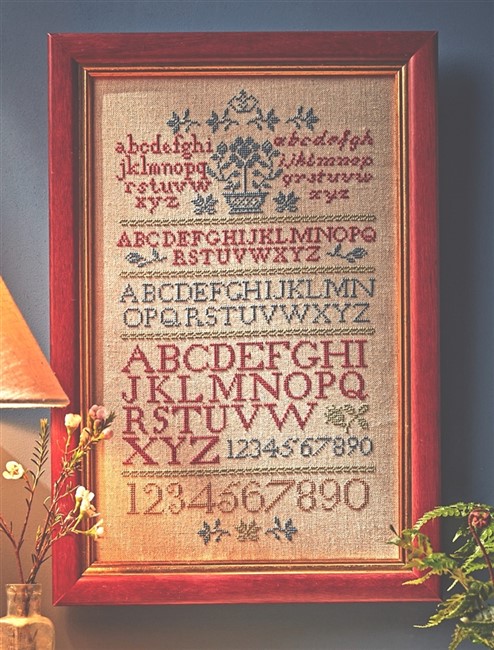 abcdefghi
jklmnopq
rstuvw
xyz
abcdefgh
ijklmnop
qrstuvw
xyz
ABCDEFGHIJKLMNOPQ
RSTUVWXYZ
ABCDEFGHIJKLMN
OPQRSTUVWXYZ
ABCDEFGHI
JKLMNOPQ
RSTUVW
XYZ 1234567890
1234567890